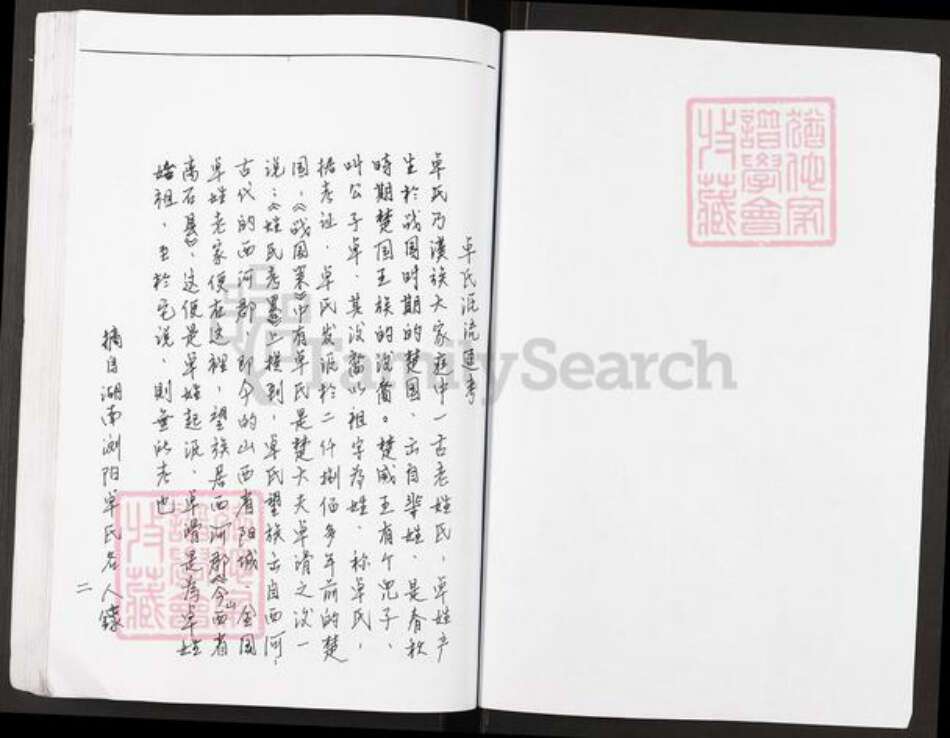 卓氏源流通考
卓氏乃漢族大家庭中一古老姓氏，卓姓产
生於战国时期的楚国、云自芈姓、是春秋
時期楚国王族的後裔。楚威王有个兒子、
叫公子卓．其後裔以祖字为姓．称卓氏，
据考证．卓氏发源於二仟捌佰多年前的楚
国，《战国策》中有卓氏是楚大夫卓滑之後一
说；《姓氏考畧》上提到，卓氏望族云自西河，
古代的西河郡．即今的山西省阳城．全国
卓姓老家便在这裡，望族居西河郡《今山西省
离石县》、这便是卓姓起源．卓滑是为卓姓
始祖．至於它说、則無所考也
摘自湖南浏阳卓氏名人錄
二
猶他家
譜學會
收藏
猶他家
譜學會
收藏
FamilySearch